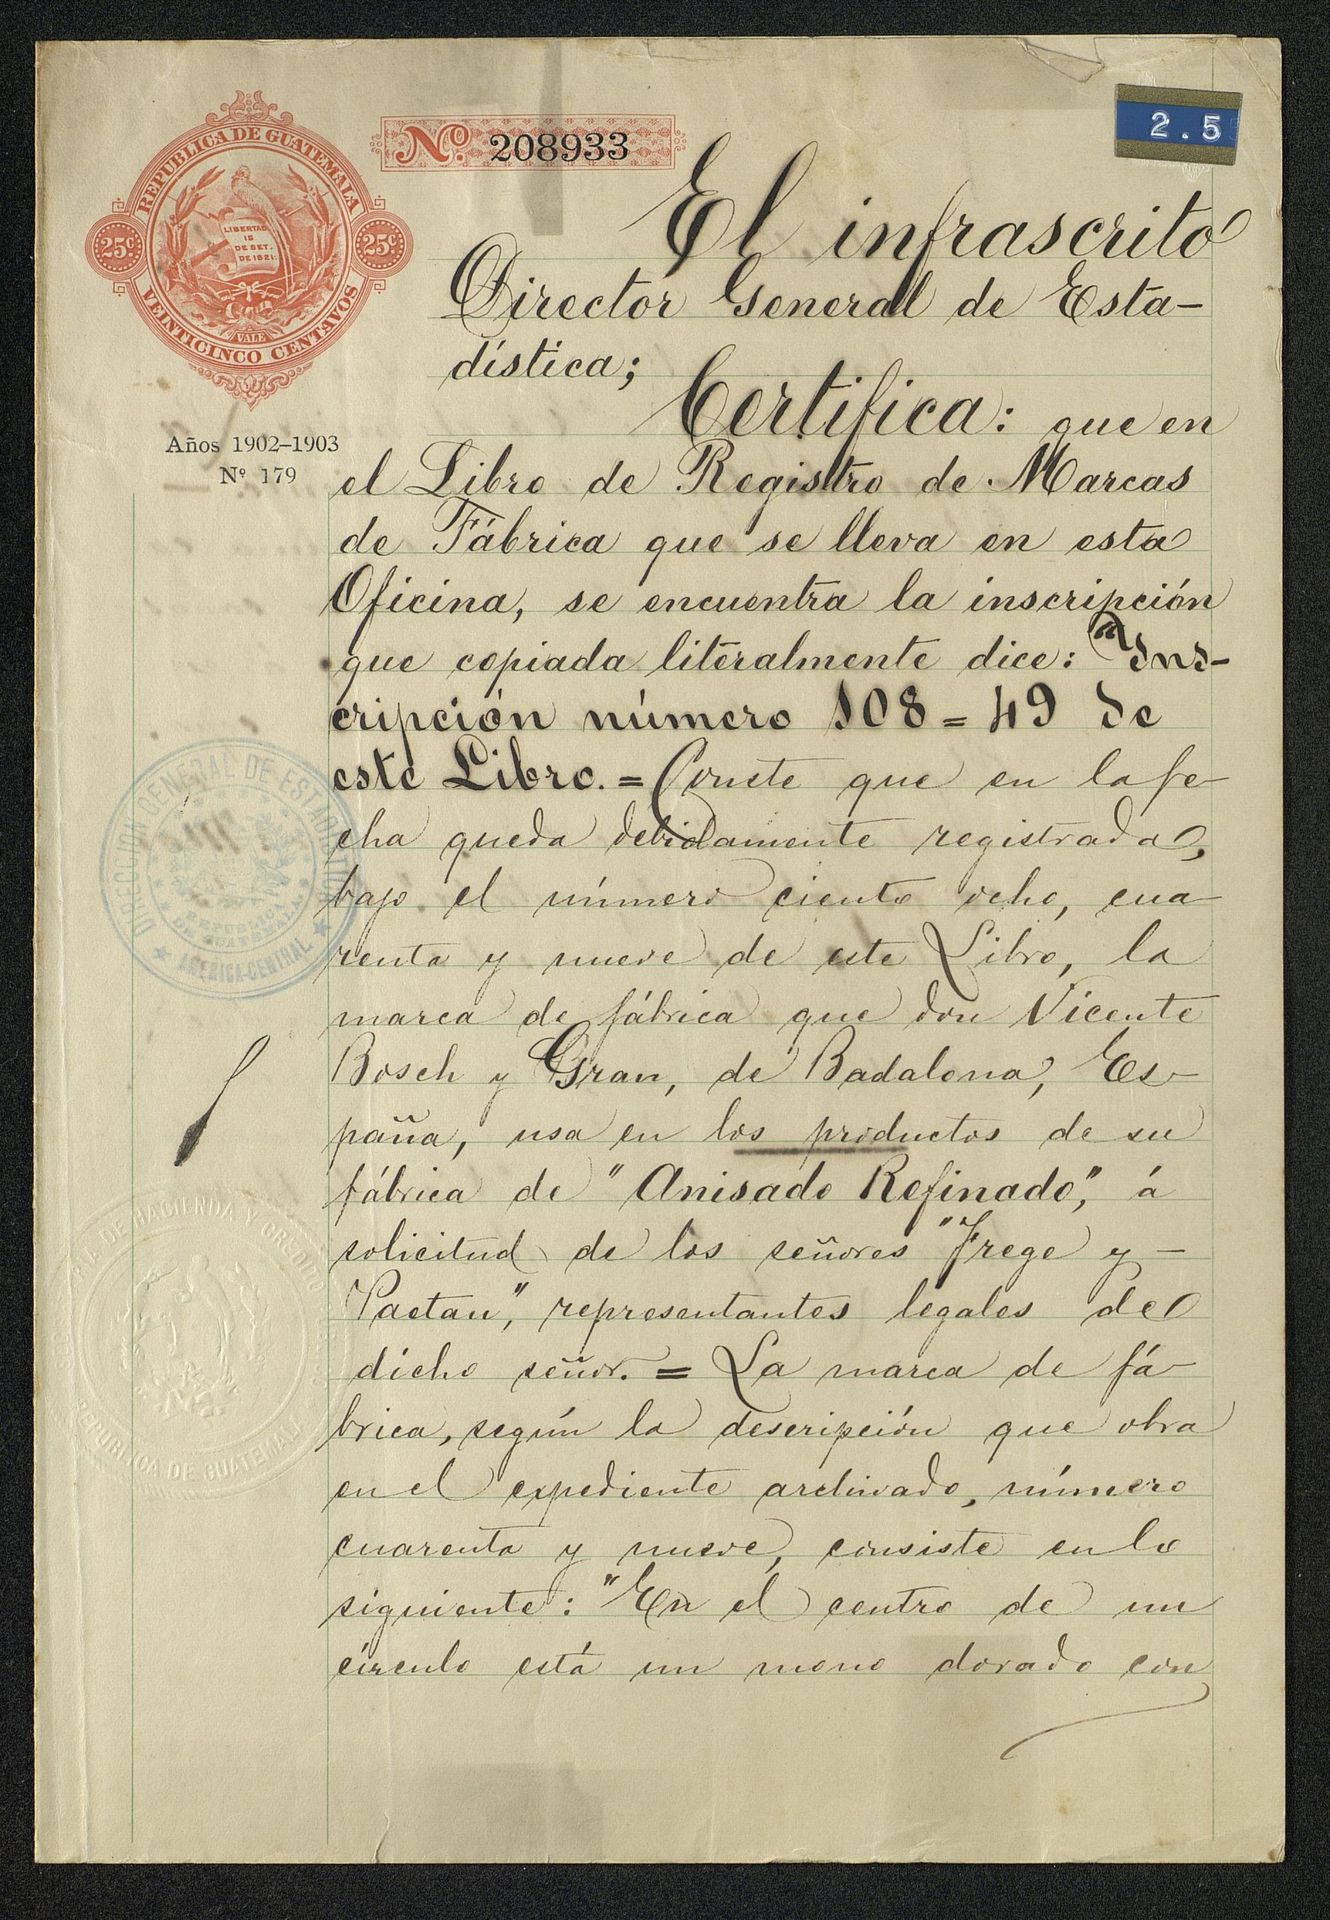 REPUBLICA DE GUATEMALA
25c 25c
LIBERTAD
15
DE SET.
DE 1821
VALE
VEINTICINCO CENTAVOS
No. 208933
2.5
Años 1902–1903
Nº 179
El infrascrito
Director General de Esta-
dística;
Certifica: que en
el Libro de Registro de Marcas
de Fábrica que se lleva en esta
Oficina, se encuentra la inscripción
que copiada literalmente dice: "Ins-
cripción número 108 = 49 de
este Libro. = Conste que en la fe-
cha queda debidamente registrada,
bajo el número ciento ocho, cua-
renta y nueve de este Libro, la
marca de fábrica que don Vicente
Bosch y Gran, de Badalona, Es-
paña, usa en los productos de su
fábrica de "Anisado Refinado", á
solicitud de los señores "Frege y -
Paetau", representantes legales de
dicho señor. = La marca de fá-
brica, según la descripción que obra
en el expediente archivado, número
cuarenta y nueve, consiste en lo
siguiente: "En el centro de un
círculo está un mono dorado con
DIRECCION GENERAL DE ESTADISTICA
REPUBLICA
DE GUATEMALA
AMERICA-CENTRAL
DE HACIENDA Y CREDITO
REPUBLICA DE GUATEMALA